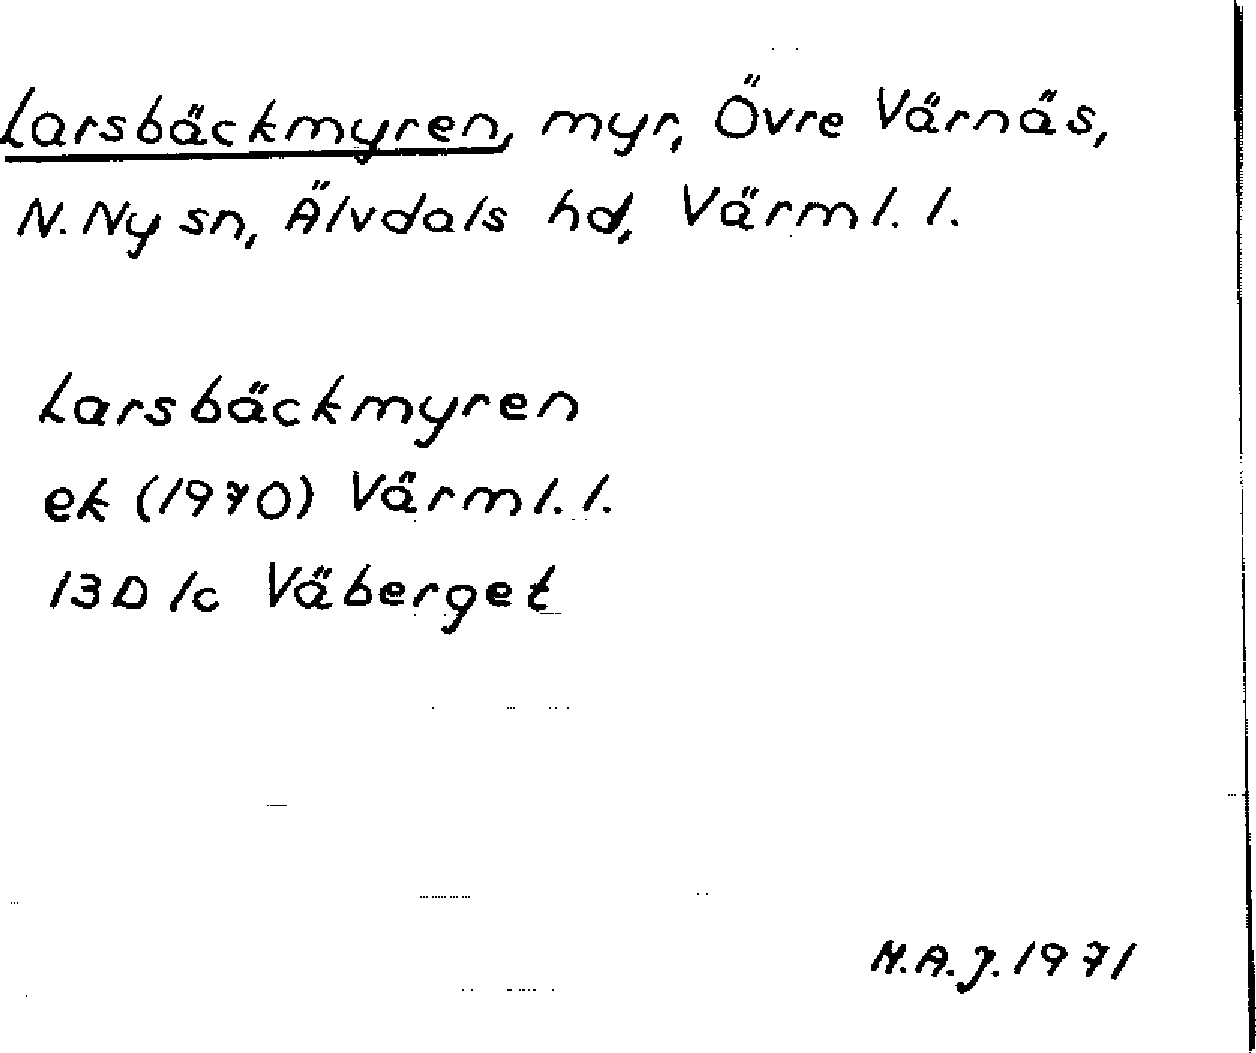 Larsbäckmyren, myr, Övre Värnäs,
N. Ny sn, Älvdals hd, Värml. l.
Larsbäckmyren
ek (1970) Värml. l.
13D 1c Väberget
M.A.J. 1971